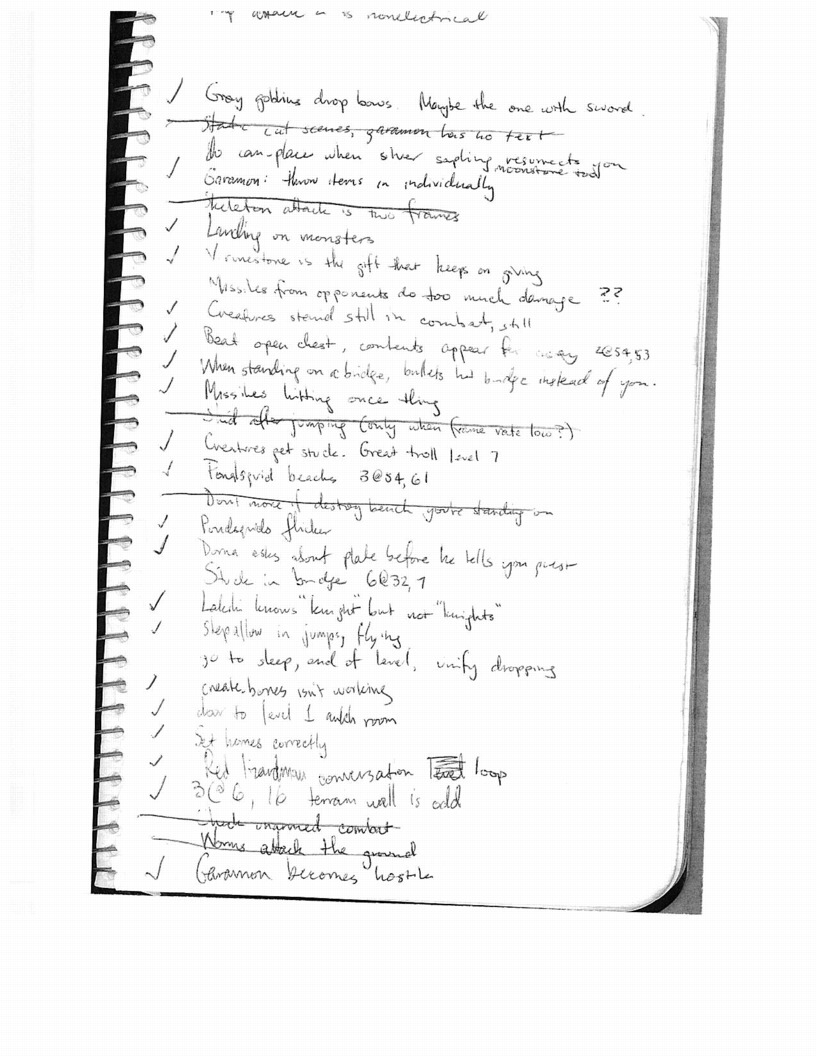 attack is nonelectrical
✓ Gray goblins drop bows. Maybe the one with sword.
Static cut scenes, garamon has no text
Do can-place when silver sapling resurrects you
moonstone too
✓ Garamon: throw items in individually
Skeleton attack is two frames
✓ Landing on monsters
✓ V runestone is the gift that keeps on giving
Missiles from opponents do too much damage ??
✓ Creatures stand still in combat, still
✓ Beat open chest, contents appear far away 2@54,53
✓ When standing on a bridge, bullets hit bridge instead of you.
✓ Missiles hitting once thing
Skid after jumping (only when frame rate low?)
✓ Creatures get stuck. Great troll level 7
✓ beachs 3@54,61
Dont move if destroy bench you're standing on
✓ flicker
✓ Dorna asks about plate before he tells you quest
Stuck in bridge 6@32,7
✓ Lakshi knows "knight" but not "knights"
✓ Stepallow in jumps, flying
go to sleep, end of level, unify dropping
✓ create-bones isn't working
✓ door to level 1 ankh room
✓ Set homes correctly
✓ Red lizardman conversation level loop
✓ 3@6, 16 terrain wall is odd
Check unarmed combat
Worms attack the ground
✓ Garamon becomes hostile